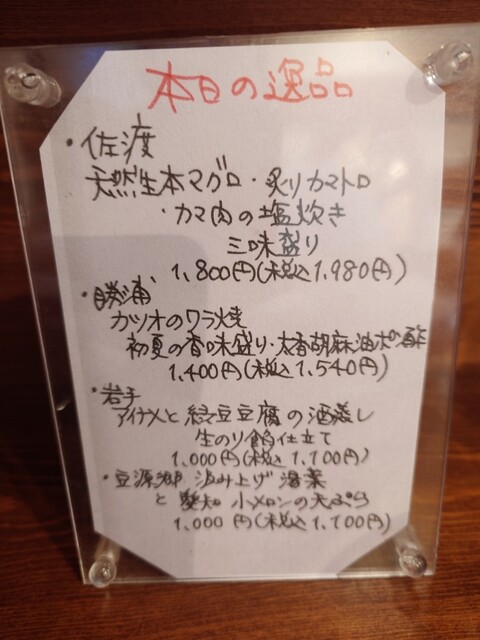 本日の逸品
・佐渡
天然生本マグロ・炙りカマトロ
・カマ肉の塩炊き
三味盛り
1,800円(税込1,980円)
・勝浦
カツオのワラ焼
初夏の香味盛り・太香胡麻油ポン酢
1,400円(税込1,540円)
・岩手
アイナメと緑豆豆腐の酒蒸し
生のり餡仕立て
1,000円(税込1,100円)
・豆源郷 汲み上げ湯葉
と愛知 小メロンの天ぷら
1,000円(税込1,100円)